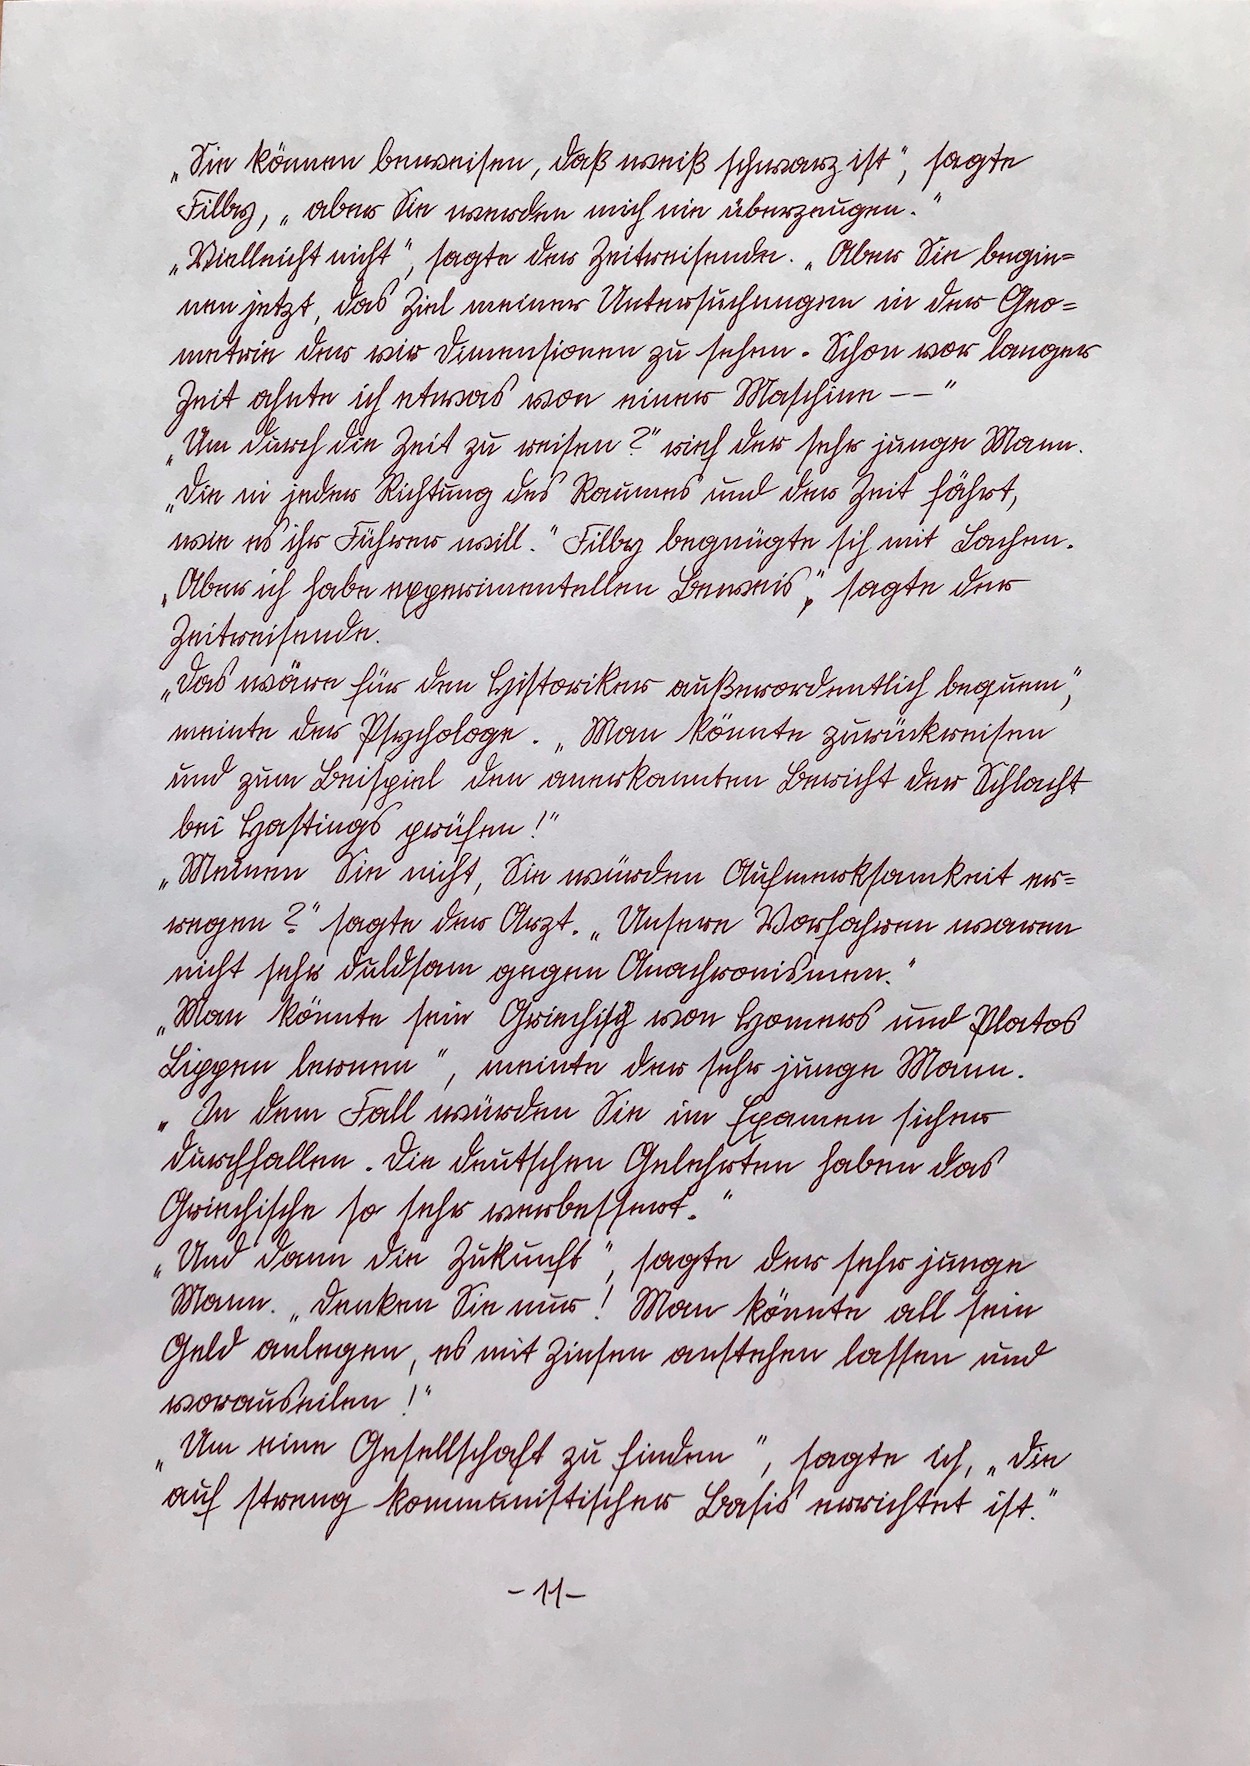 „Sie können beweisen, daß weiß schwarz ist“, sagte
Filby, „aber Sie werden mich nie überzeugen.“
„Vielleicht nicht“, sagte der Zeitreisende. „Aber Sie begin=
nen jetzt, das Ziel meiner Untersuchungen in der Geo=
metrie der vir Dimensionen zu sehen. Schon vor langer
Zeit ahnte ich etwas von einer Maschine – –“
„Um durch die Zeit zu reisen?“ rief der sehr junge Mann.
„Die in jeder Richtung des Raumes und der Zeit fährt,
wie es ihr Führer will.“ Filby begnügte sich mit Lachen.
„Aber ich habe experimentellen Beweis“, sagte der
Zeitreisende.
„Das wäre für den Historiker außerordentlich bequem“,
meinte der Psychologe. „Man könnte zurückreisen
und zum Beispiel den anerkannten Bericht der Schlacht
bei Hastings prüfen!“
„Meinen Sie nicht, Sie würden Aufmerksamkeit er=
regen?“ sagte der Arzt. „Unsere Vorfahren waren
nicht sehr duldsam gegen Anachronismen.“
„Man könnte sein Griechisch von Homers und Platos
Lippen lernen“, meinte der sehr junge Mann.
„In dem Fall würden Sie im Examen sicher
durchfallen. Die deutschen Gelehrten haben das
Griechische so sehr verbessert.“
„Und dann die Zukunft“, sagte der sehr junge
Mann. „Denken Sie nur! Man könnte all sein
Geld anlegen, es mit Zinsen anstehen lassen und
vorauseilen!“
„Um eine Gesellschaft zu finden“, sagte ich, „die
auf streng kommunistischer Basis errichtet ist.“
-11-